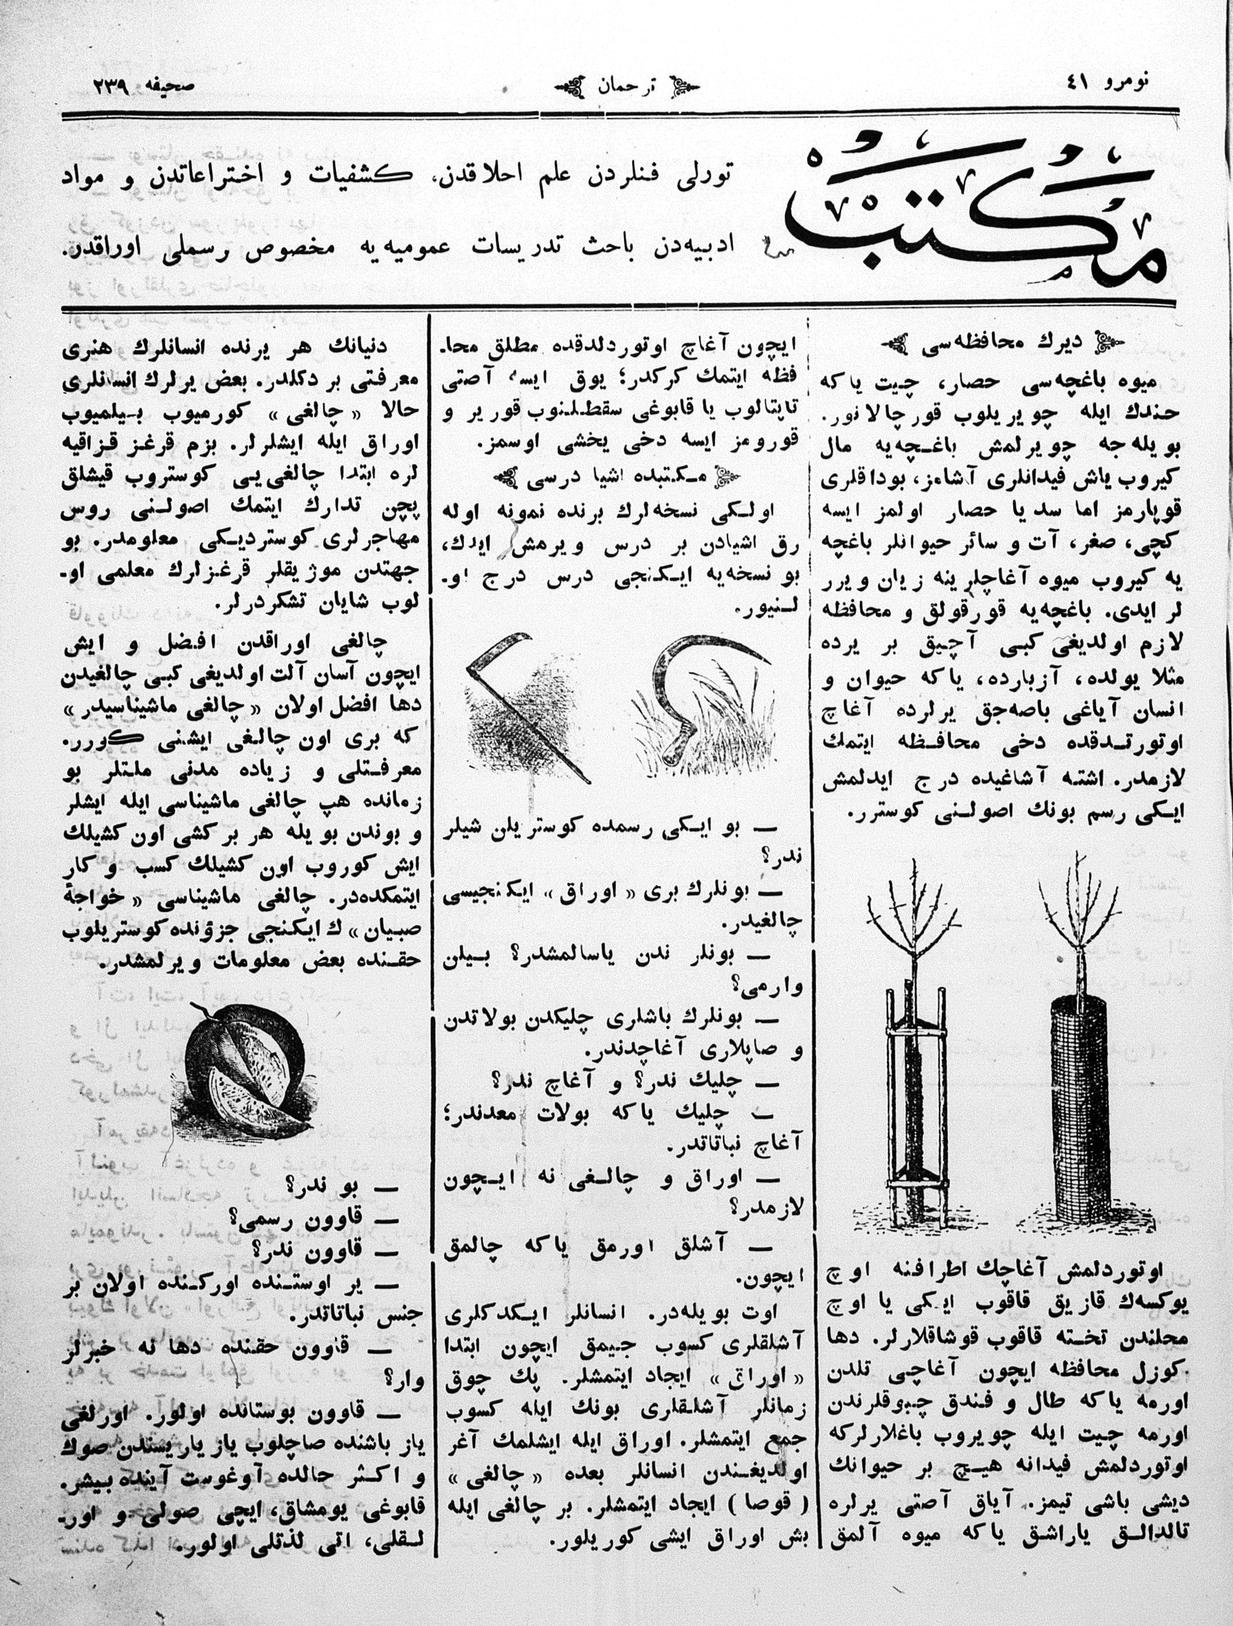 نومرو ٤١
ترجمان
صحیفه ٢٣٩
مكتب
تورلی فنلردن علم احلاقدن، كشفیات و اختراعاتدن و مواد
ادبیه‌دن باحث تدریسات عمومیه‌یه مخصوص رسملی اوراقدر.
دیرك محافظه‌سی
میوه باغچه‌سی حصار، چیت یاكه
خندك ایله چویریلوب قورچالانور.
بویله‌جه چویرلمش باغچه‌یه مال
كیروب یاش فیدانلری آشامز، بوداقلری
قوپارمز اما سد یا حصار اولمز ایسه
كچی، صغر، آت و سائر حیوانلر باغچه
یه كیروب میوه آغاچلرینه زیان ویرر
لر ایدی. باغچه‌یه قورقولق و محافظه
لازم اولدیغی كبی آچیق بر یرده
مثلا یولده، آزبارده، یاكه حیوان و
انسان آیاغی باصه‌جق یرلرده آغاچ
اوتورتدقده دخی محافظه ایتمك
لازمدر. اشته آشاغیده درج ایدلمش
ایكی رسم بونك اصولنی كوسترر.
اوتوردلمش آغاچك اطرافنه اوچ
یوكسه‌ك قازیق قاقوب ایكی یا اوچ
محلندن تخته قاقوب قوشاقلارلر. دها
كوزل محافظه ایچون آغاچی تلدن
اورمه یاكه طال و فندق چبوقلرندن
اورمه چیت ایله چویروب باغلارلركه
اوتوردلمش فیدانه هیچ بر حیوانك
دیشی باشی تیمز. آیاق آصتی یرلره
تالدالق یاراشق یاكه میوه آلمق
ایچون آغاچ اوتوردلدقده مطلق محا-
فظه ایتمك كركدر؛ یوق ایسه آصتی
تاپتالوب یا قابوغی سقطلنوب قوریر و
قورومز ایسه دخی یخشی اوسمز.
مكتبده اشیا درسی
اولكی نسخه‌لرك برنده نمونه اوله
رق اشیادن بر درس ویرمش ایدك،
بو نسخه‌یه ایكنجی درس درج او-
لنیور.
— بو ایكی رسمده كوستریلن شیلر
ندر؟
— بونلرك بری «اوراق» ایكنجیسی
چالغیدر.
— بونلر ندن یاسالمشدر؟ بیلن
وارمی؟
— بونلرك باشلری چلیكدن بولاتدن
و صاپلاری آغاچدندر.
— چلیك ندر؟ و آغاچ ندر؟
— چلیك یاكه بولات معدندر؛
آغاچ نباتاتدر.
— اوراق و چالغی نه ایچون
لازمدر؟
— آشلق اورمق یاكه چالمق
ایچون.
اوت بویله‌در. انسانلر ایكدكلری
آشلقلری كسوب جیمق ایچون ابتدا
«اوراق» ایجاد ایتمشلر. پك چوق
زمانلر آشلقلری بونك ایله كسوب
جمع ایتمشلر. اوراق ایله ایشلمك آغر
اولدیغندن انسانلر بعده «چالغی»
(قوصا) ایجاد ایتمشلر. بر چالغی ایله
بش اوراق ایشی كوریلور.
دنیانك هر یرنده انسانلرك هنری
معرفتی بر دكلدر. بعض یرلرك انسانلری
حالا «چالغی» كورمیوب بیلمیوب
اوراق ایله ایشلرلر. بزم قرغز قزاقیه
لره ابتدا چالغی‌یی كوستروب قیشلق
پچن تدارك ایتمك اصولنی روس
مهاجرلری كوستردیكی معلومدر. بو
جهتدن موژیقلر قرغزلرك معلمی او-
لوب شایان تشكردرلر.
چالغی اوراقدن افضل و ایش
ایچون آسان آلت اولدیغی كبی چالغیدن
دها افضل اولان «چالغی ماشیناسیدر»
كه بری اون چالغی ایشنی كورر.
معرفتلی و زیاده مدنی ملتلر بو
زمانده هپ چالغی ماشیناسی ایله ایشلر
و بوندن بویله هر بر كشی اون كشیلك
ایش كوروب اون كشیلك كسب و كار
ایتمكده‌در. چالغی ماشیناسی «خواجهٔ
صبیان» ك ایكنجی جزؤنده كوستریلوب
حقنده بعض معلومات ویرلمشدر.
— بو ندر؟
— قاوون رسمی؟
— قاوون ندر؟
— یر اوستنده اوركنده اولان بر
جنس نباتاتدر.
— قاوون حقنده دها نه خبرلر
وار؟
— قاوون بوستانده اولور. اورلغی
یاز باشنده صاچلوب یاز یاریسندن صوك
و اكثر حالده آوغوست آینده بیشر.
قابوغی یومشاق، ایچی صولی و اور-
لقلی، اتی لذتلی اولور.